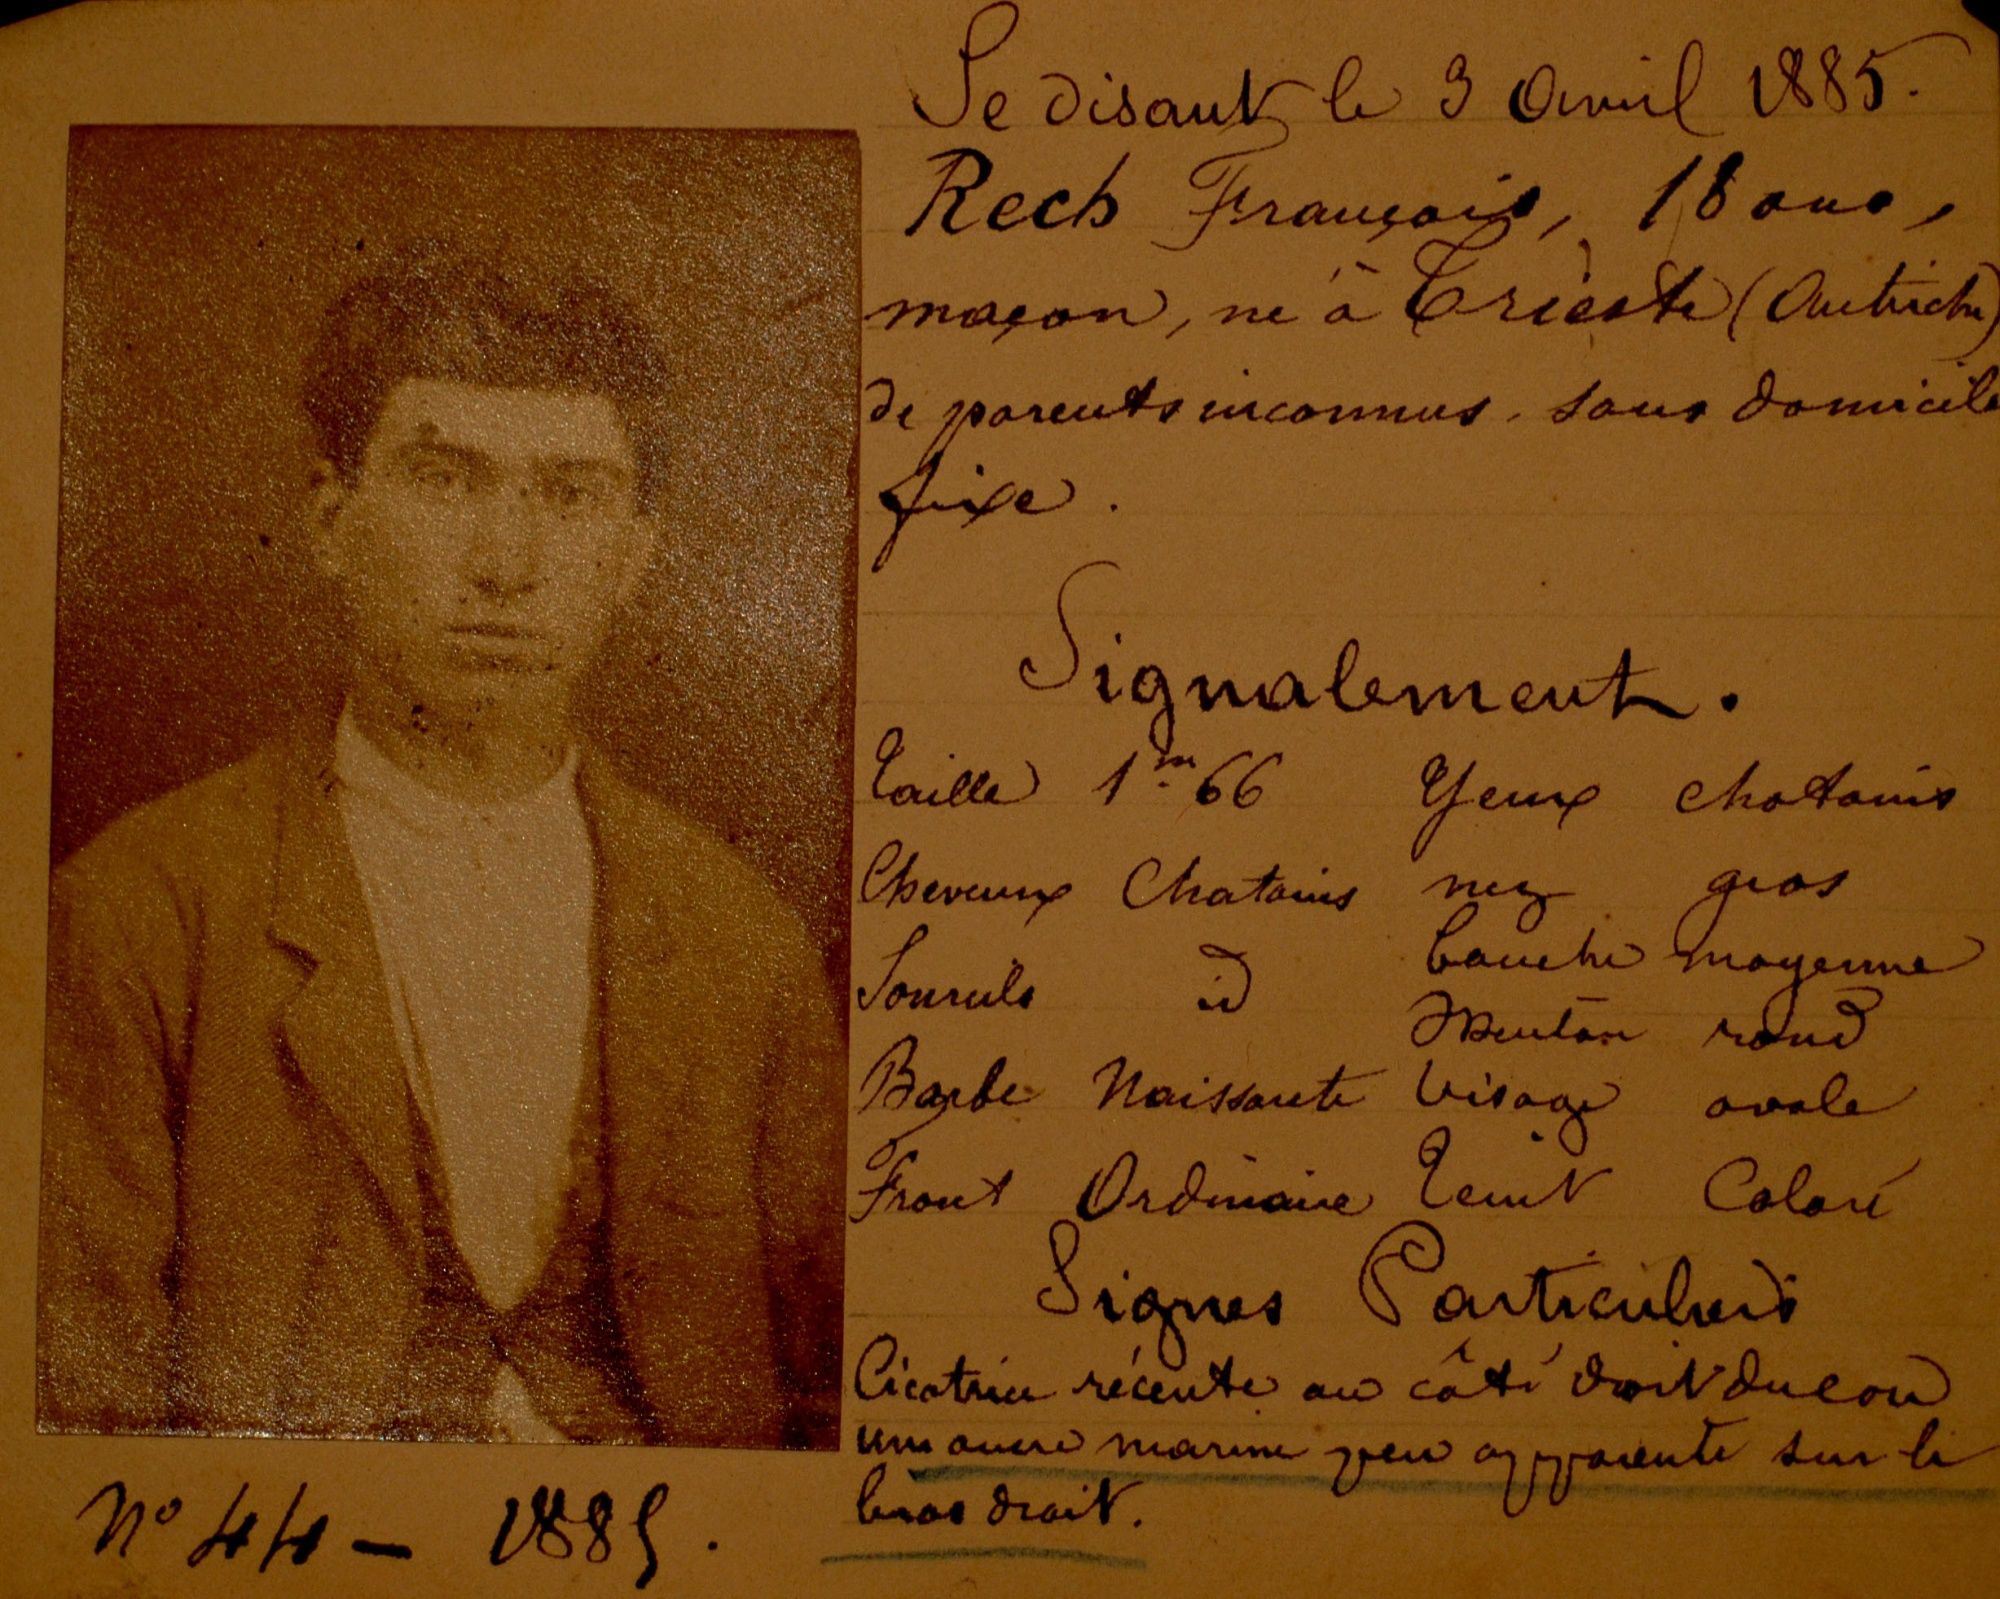 Se disant le 3 Avril 1885.
Rech François, 18 ans,
maçon, né à Trieste (Autriche)
de parents inconnus, sans domicile
fixe.
Signalement.
Taille 1m 66 Yeux chatains
Cheveux Chatains nez gros
Sourcils id bouche moyenne
Menton rond
Barbe Naissante Visage ovale
Front Ordinaire Teint Coloré
Signes Particuliers
Cicatrice récente au côté droit du cou
une ancre marine peu apparente sur le
bras droit.
No 44 - 1885.